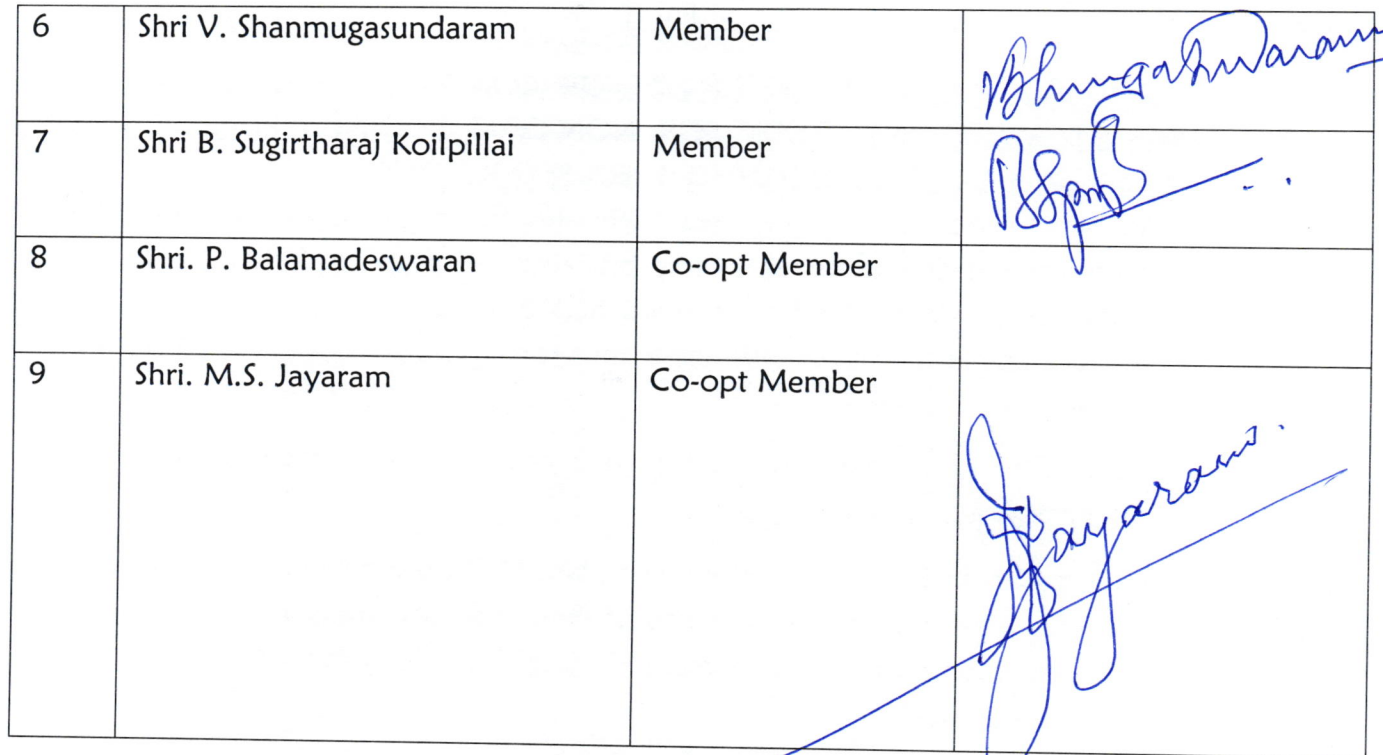 6 Shri V. Shanmugasundaram Member
7 Shri B. Sugirtharaj Koilpillai Member
8 Shri. P. Balamadeswaran Co-opt Member
9 Shri. M.S. Jayaram Co-opt Member
Jayaram.